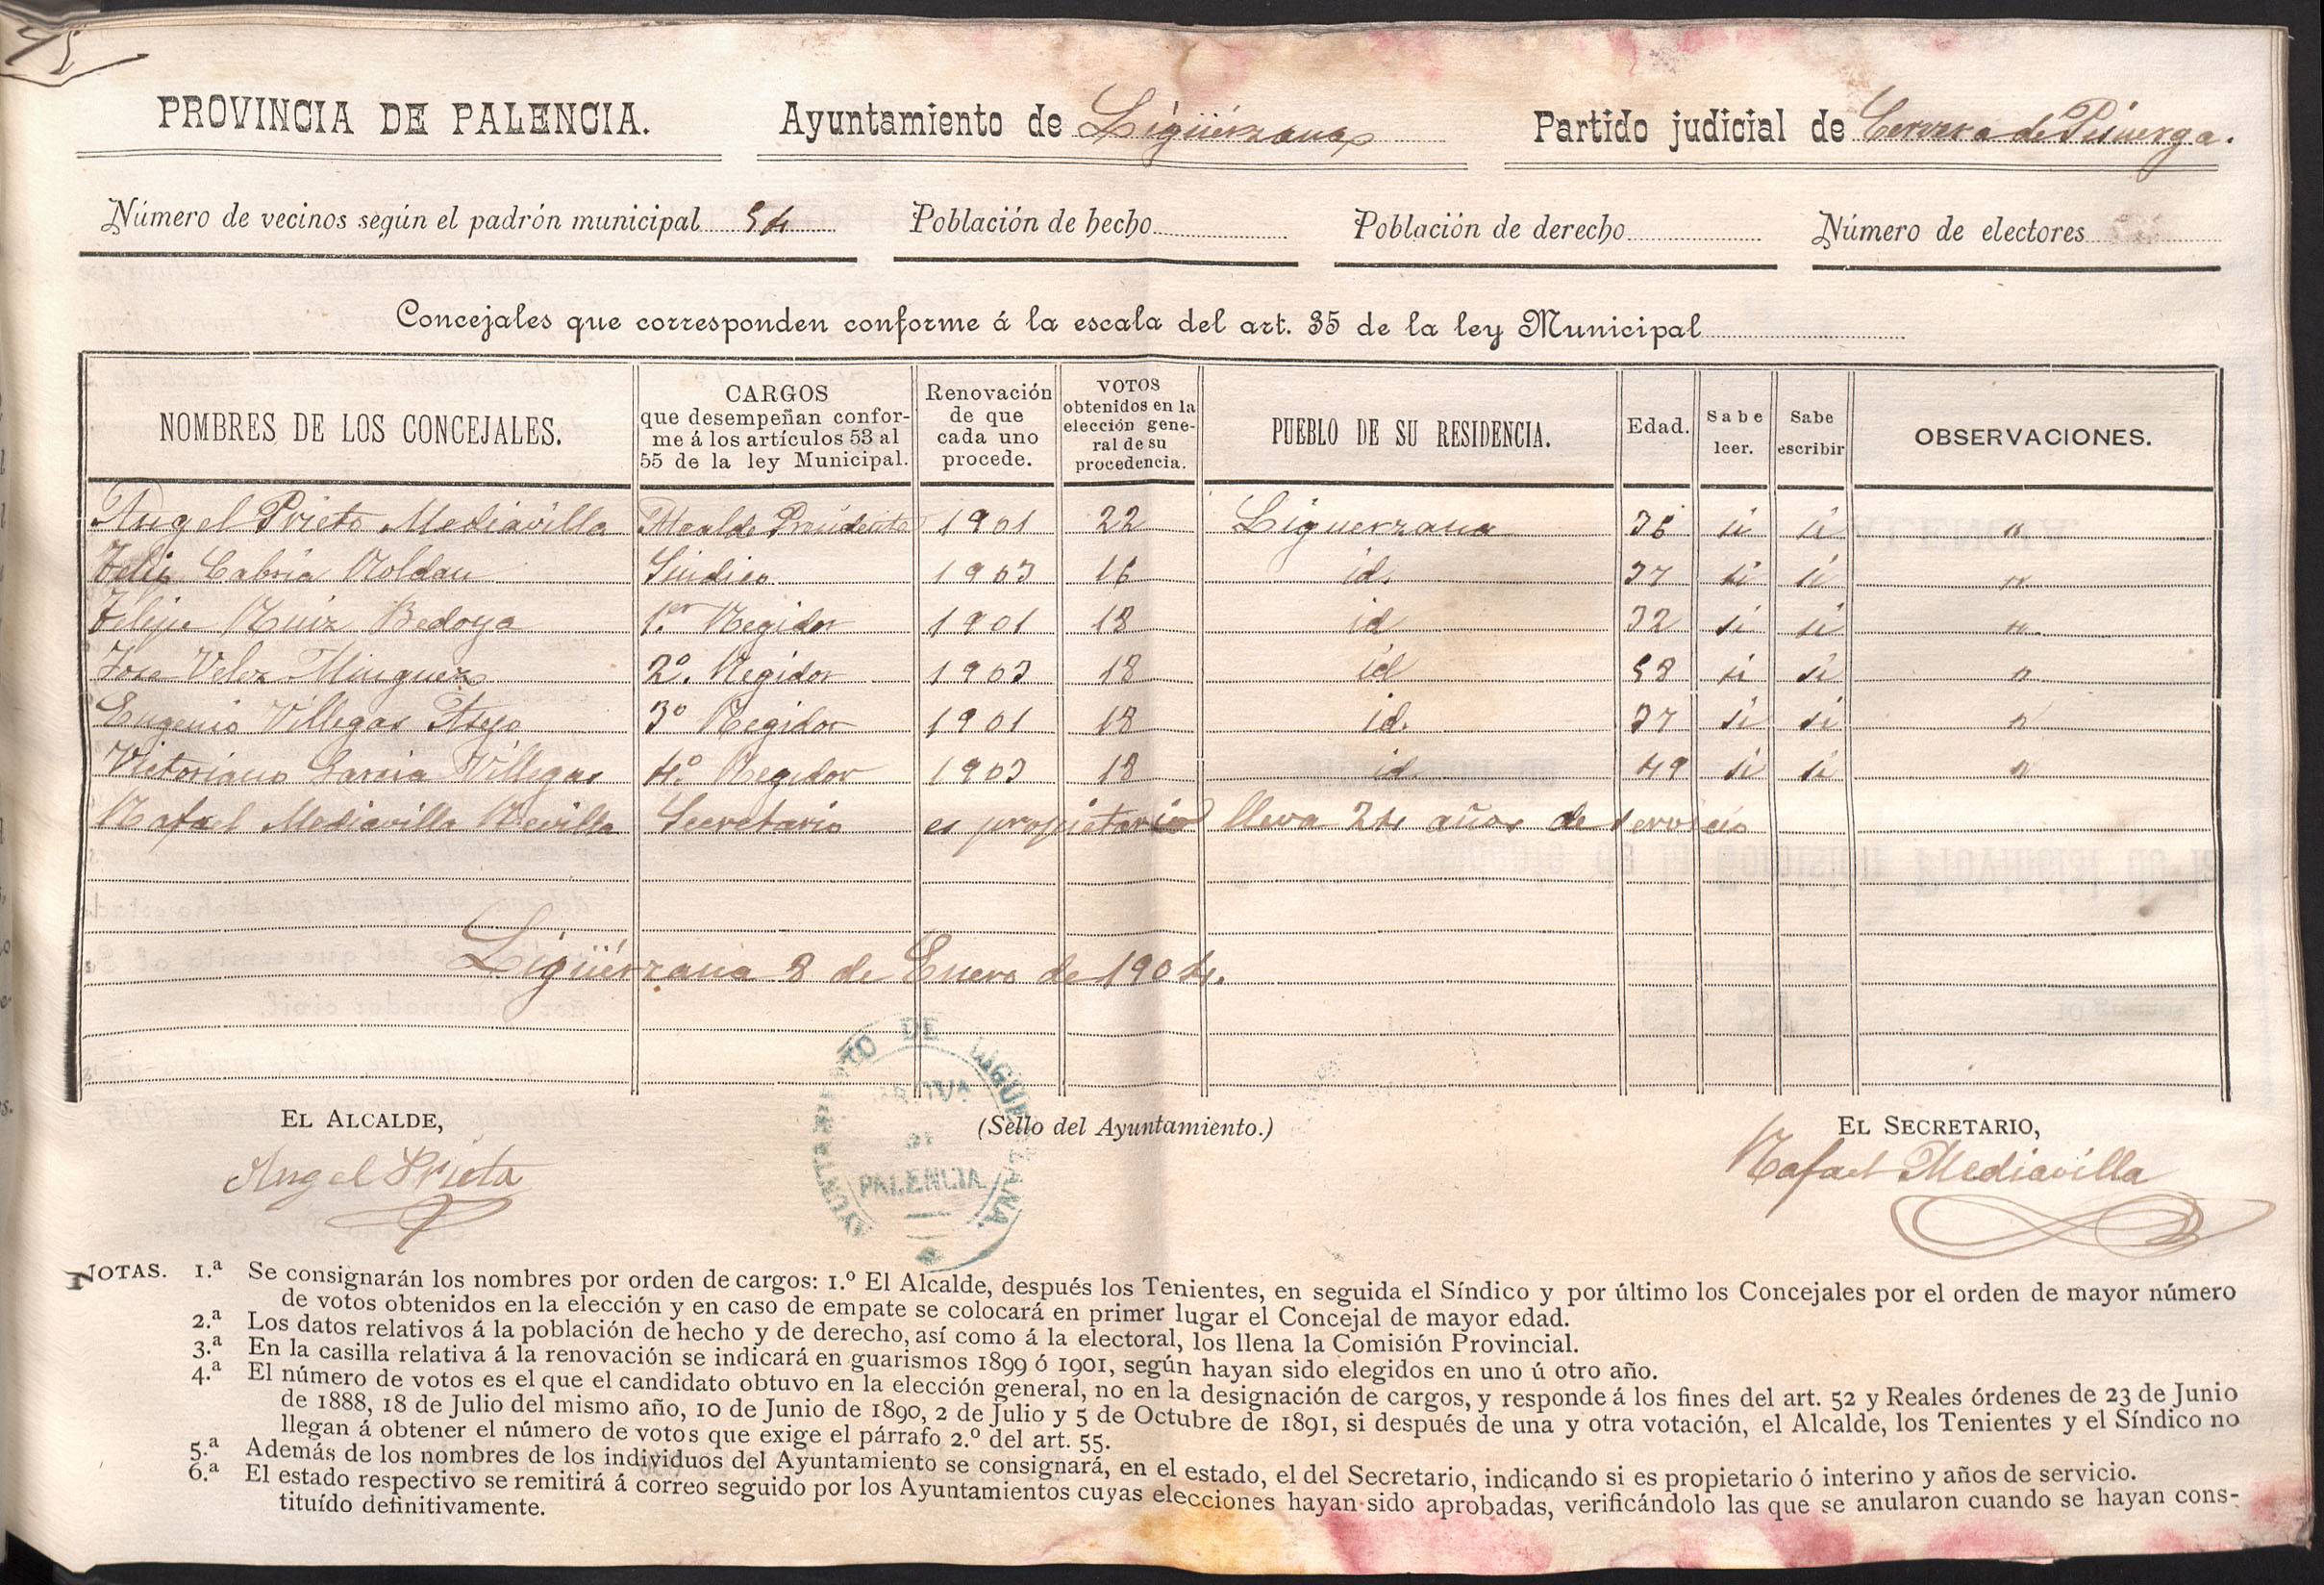 PROVINCIA DE PALENCIA. Ayuntamiento de Ligüérzana Partido judicial de Cervera de Pisuerga.
Número de vecinos según el padrón municipal 54 Población de hecho Población de derecho Número de electores
Concejales que corresponden conforme á la escala del art. 35 de la ley Municipal
NOMBRES DE LOS CONCEJALES. CARGOS que desempeñan conforme á los artículos 53 al 55 de la ley Municipal. Renovación de que cada uno procede. VOTOS obtenidos en la elección general de su procedencia. PUEBLO DE SU RESIDENCIA. Edad. Sabe leer. Sabe escribir OBSERVACIONES.
Angel Prieto Mediavilla Alcalde Presidente 1901 22 Liguerzana 36 si si "
Felix Cabria Roldan Sindico 1903 16 id. 37 si si "
Felipe Ruiz Bedoya 1.er Regidor 1901 18 id 32 si si "
Jose Velez Minguez 2º. Regidor 1903 18 id 58 si si "
Eugenio Villegas 3º Regidor 1901 18 id. 37 si si "
Victoriano Garcia Villegas 4º. Regidor 1903 18 id. 49 si si "
Rafael Mediavilla Revilla Secretario es propietario lleva 24 años de servicio
Ligüérzana 8 de Enero de 1904.
EL ALCALDE, (Sello del Ayuntamiento.) EL SECRETARIO,
Angel Prieto Rafael Mediavilla
AYUNTAMIENTO DE LIGUERZANA
PROVA DE PALENCIA
NOTAS. 1.ª Se consignarán los nombres por orden de cargos: 1.º El Alcalde, después los Tenientes, en seguida el Síndico y por último los Concejales por el orden de mayor número
de votos obtenidos en la elección y en caso de empate se colocará en primer lugar el Concejal de mayor edad.
2.ª Los datos relativos á la población de hecho y de derecho, así como á la electoral, los llena la Comisión Provincial.
3.ª En la casilla relativa á la renovación se indicará en guarismos 1899 ó 1901, según hayan sido elegidos en uno ú otro año.
4.ª El número de votos es el que el candidato obtuvo en la elección general, no en la designación de cargos, y responde á los fines del art. 52 y Reales órdenes de 23 de Junio
de 1888, 18 de Julio del mismo año, 10 de Junio de 1890, 2 de Julio y 5 de Octubre de 1891, si después de una y otra votación, el Alcalde, los Tenientes y el Síndico no
llegan á obtener el número de votos que exige el párrafo 2.º del art. 55.
5.ª Además de los nombres de los individuos del Ayuntamiento se consignará, en el estado, el del Secretario, indicando si es propietario ó interino y años de servicio.
6.ª El estado respectivo se remitirá á correo seguido por los Ayuntamientos cuyas elecciones hayan sido aprobadas, verificándolo las que se anularon cuando se hayan cons-
tituído definitivamente.